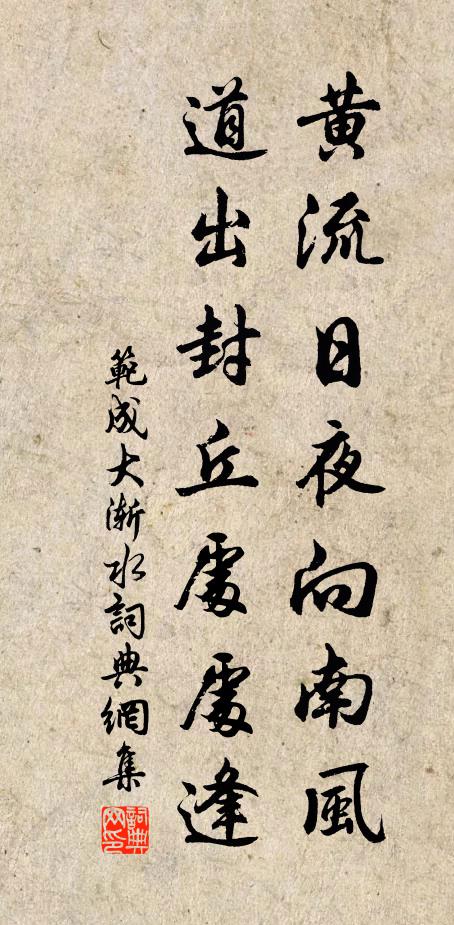 黃流日夜向南風
道出封丘處處逢
範成大漸水詞典網集
詞典
网印